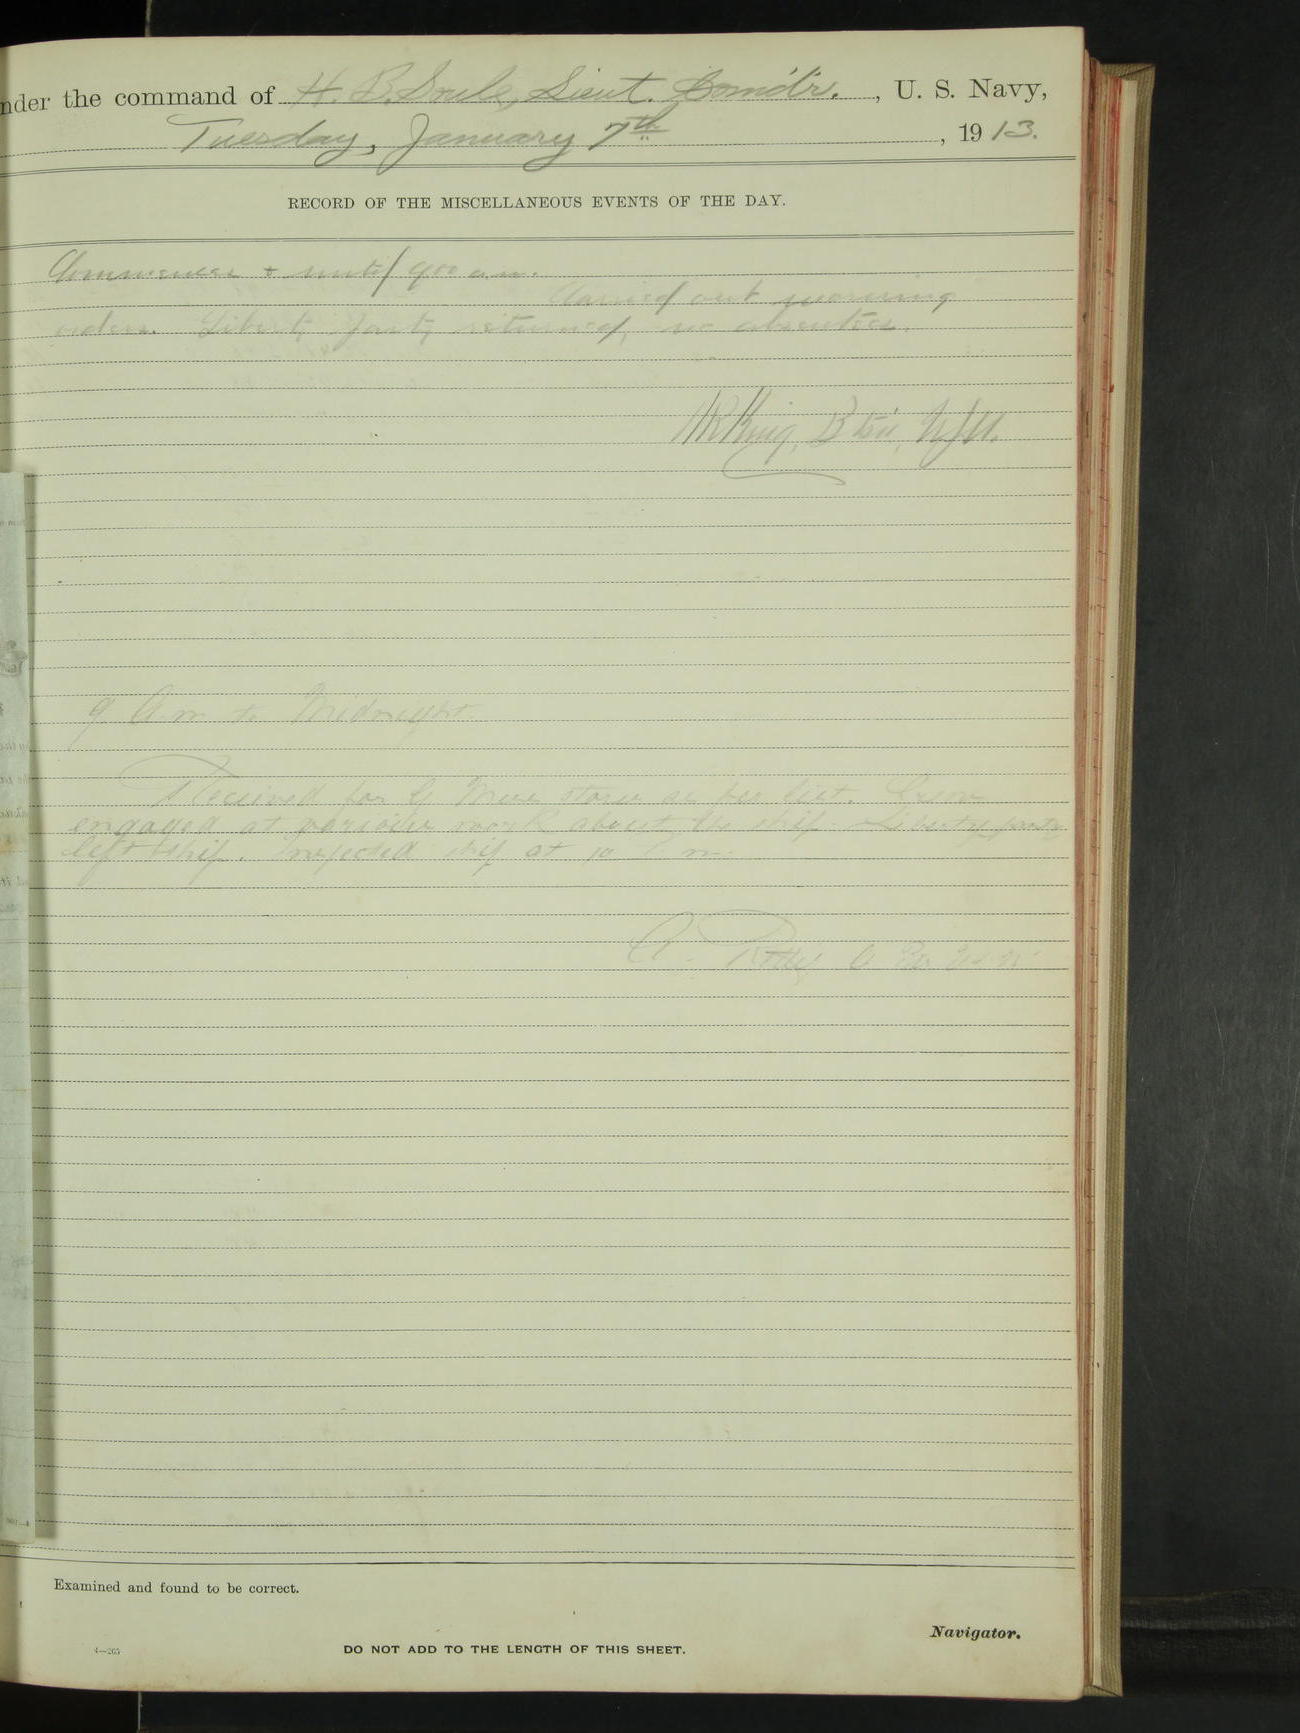 nder the command of H. B. Soule, Lieut. Comdr., U. S. Navy,
Tuesday, January 7th, 1913.
RECORD OF THE MISCELLANEOUS EVENTS OF THE DAY.
Commences & until 9 00 a.m.
Carried out morning
orders. Liberty party returned, no absentees.
King, Btsn, U.S.N.
9 A.m. to Midnight.
Received for G Mess stores as per list. Crew
engaged at various work about the ship. Liberty party
left ship. Inspected ship at 10 P.m.
A.
Examined and found to be correct.
Navigator.
4—265
DO NOT ADD TO THE LENGTH OF THIS SHEET.